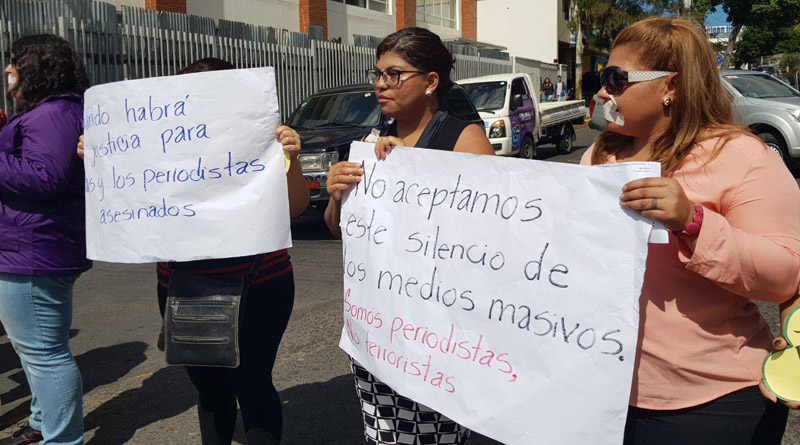 habrá
justicia para
y los periodistas
asesinados
No aceptamos
este silencio de
los medios masivos.
Somos periodistas,
No terroristas